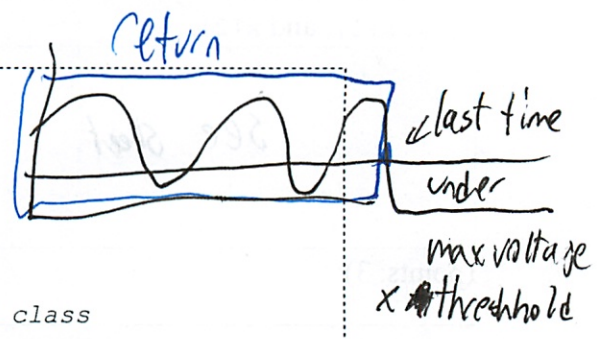 return
last time
under
max voltage
x threshhold
class